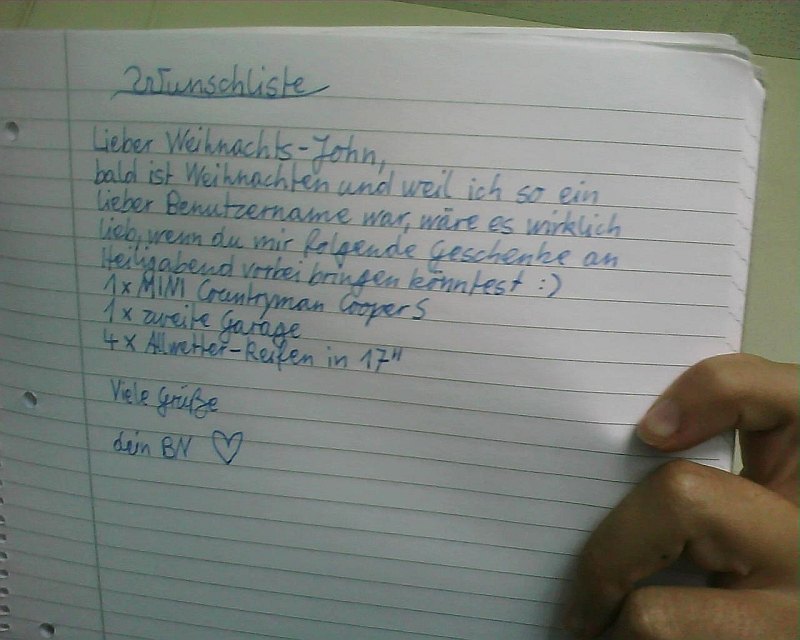 Wunschliste
Lieber Weihnachts-John,
bald ist Weihnachten und weil ich so ein
lieber Benutzername war, wäre es wirklich
lieb, wenn du mir folgende Geschenke an
Heiligabend vorbei bringen könntest :)
1x MINI Countryman Cooper S
1x zweite Garage
4x Allwetter-Reifen in 17"
Viele Grüße
dein BN ♡